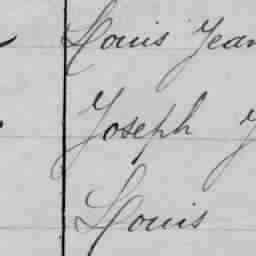 Louis Jean
Joseph J
Louis